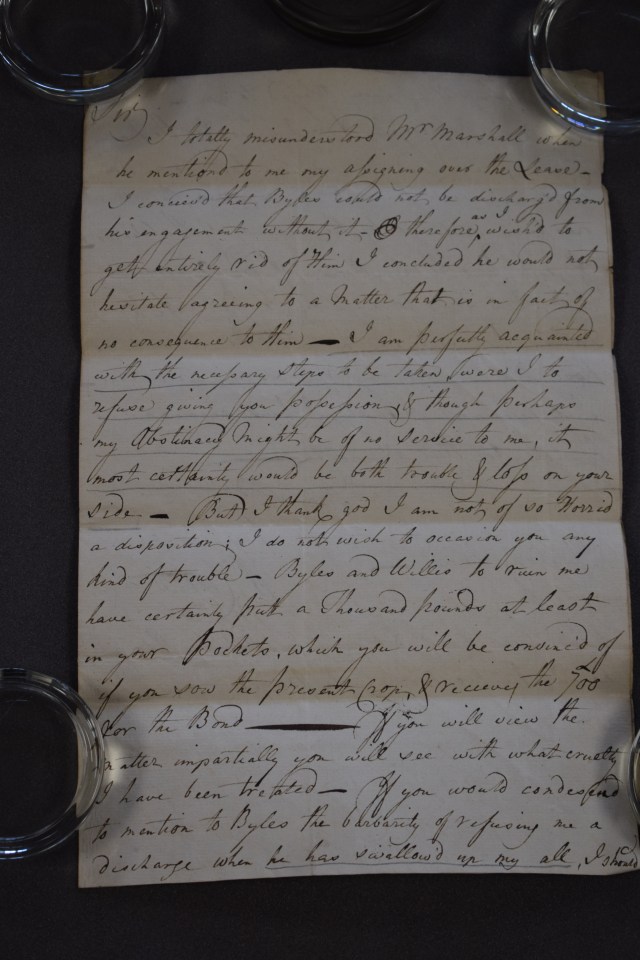 Sir,
I totally misunderstood Mr Marshall when
he mention'd to me my assigning over the Lease –
I conceiv'd that Byles could not be discharg'd from
his engagement without it – & therefore, as I wish'd to
get entirely rid of Him I concluded he would not
hesitate agreeing to a Matter that is in fact of
no consequence to Him — I am perfectly acquainted
with the necessary steps to be taken, were I to
refuse giving you possession, & though perhaps
my Obstinacy Might be of no service to me, it
most certainly would be both trouble & loss on your
side – But I thank god I am not of so Horrid
a disposition; I do not wish to occasion you any
kind of trouble – Byles and Willis to ruin me
have certainly put a Thousand pounds at least
in your Pockets, which you will be convinc'd of
if you sow the present Crop, & recieve the 700
for the Bond — If you will view the
matter impartially you will see with what cruelty
I have been treated — If you would condescend
to mention to Byles the barbarity of refusing me a
discharge when he has swallow'd up my all, I should